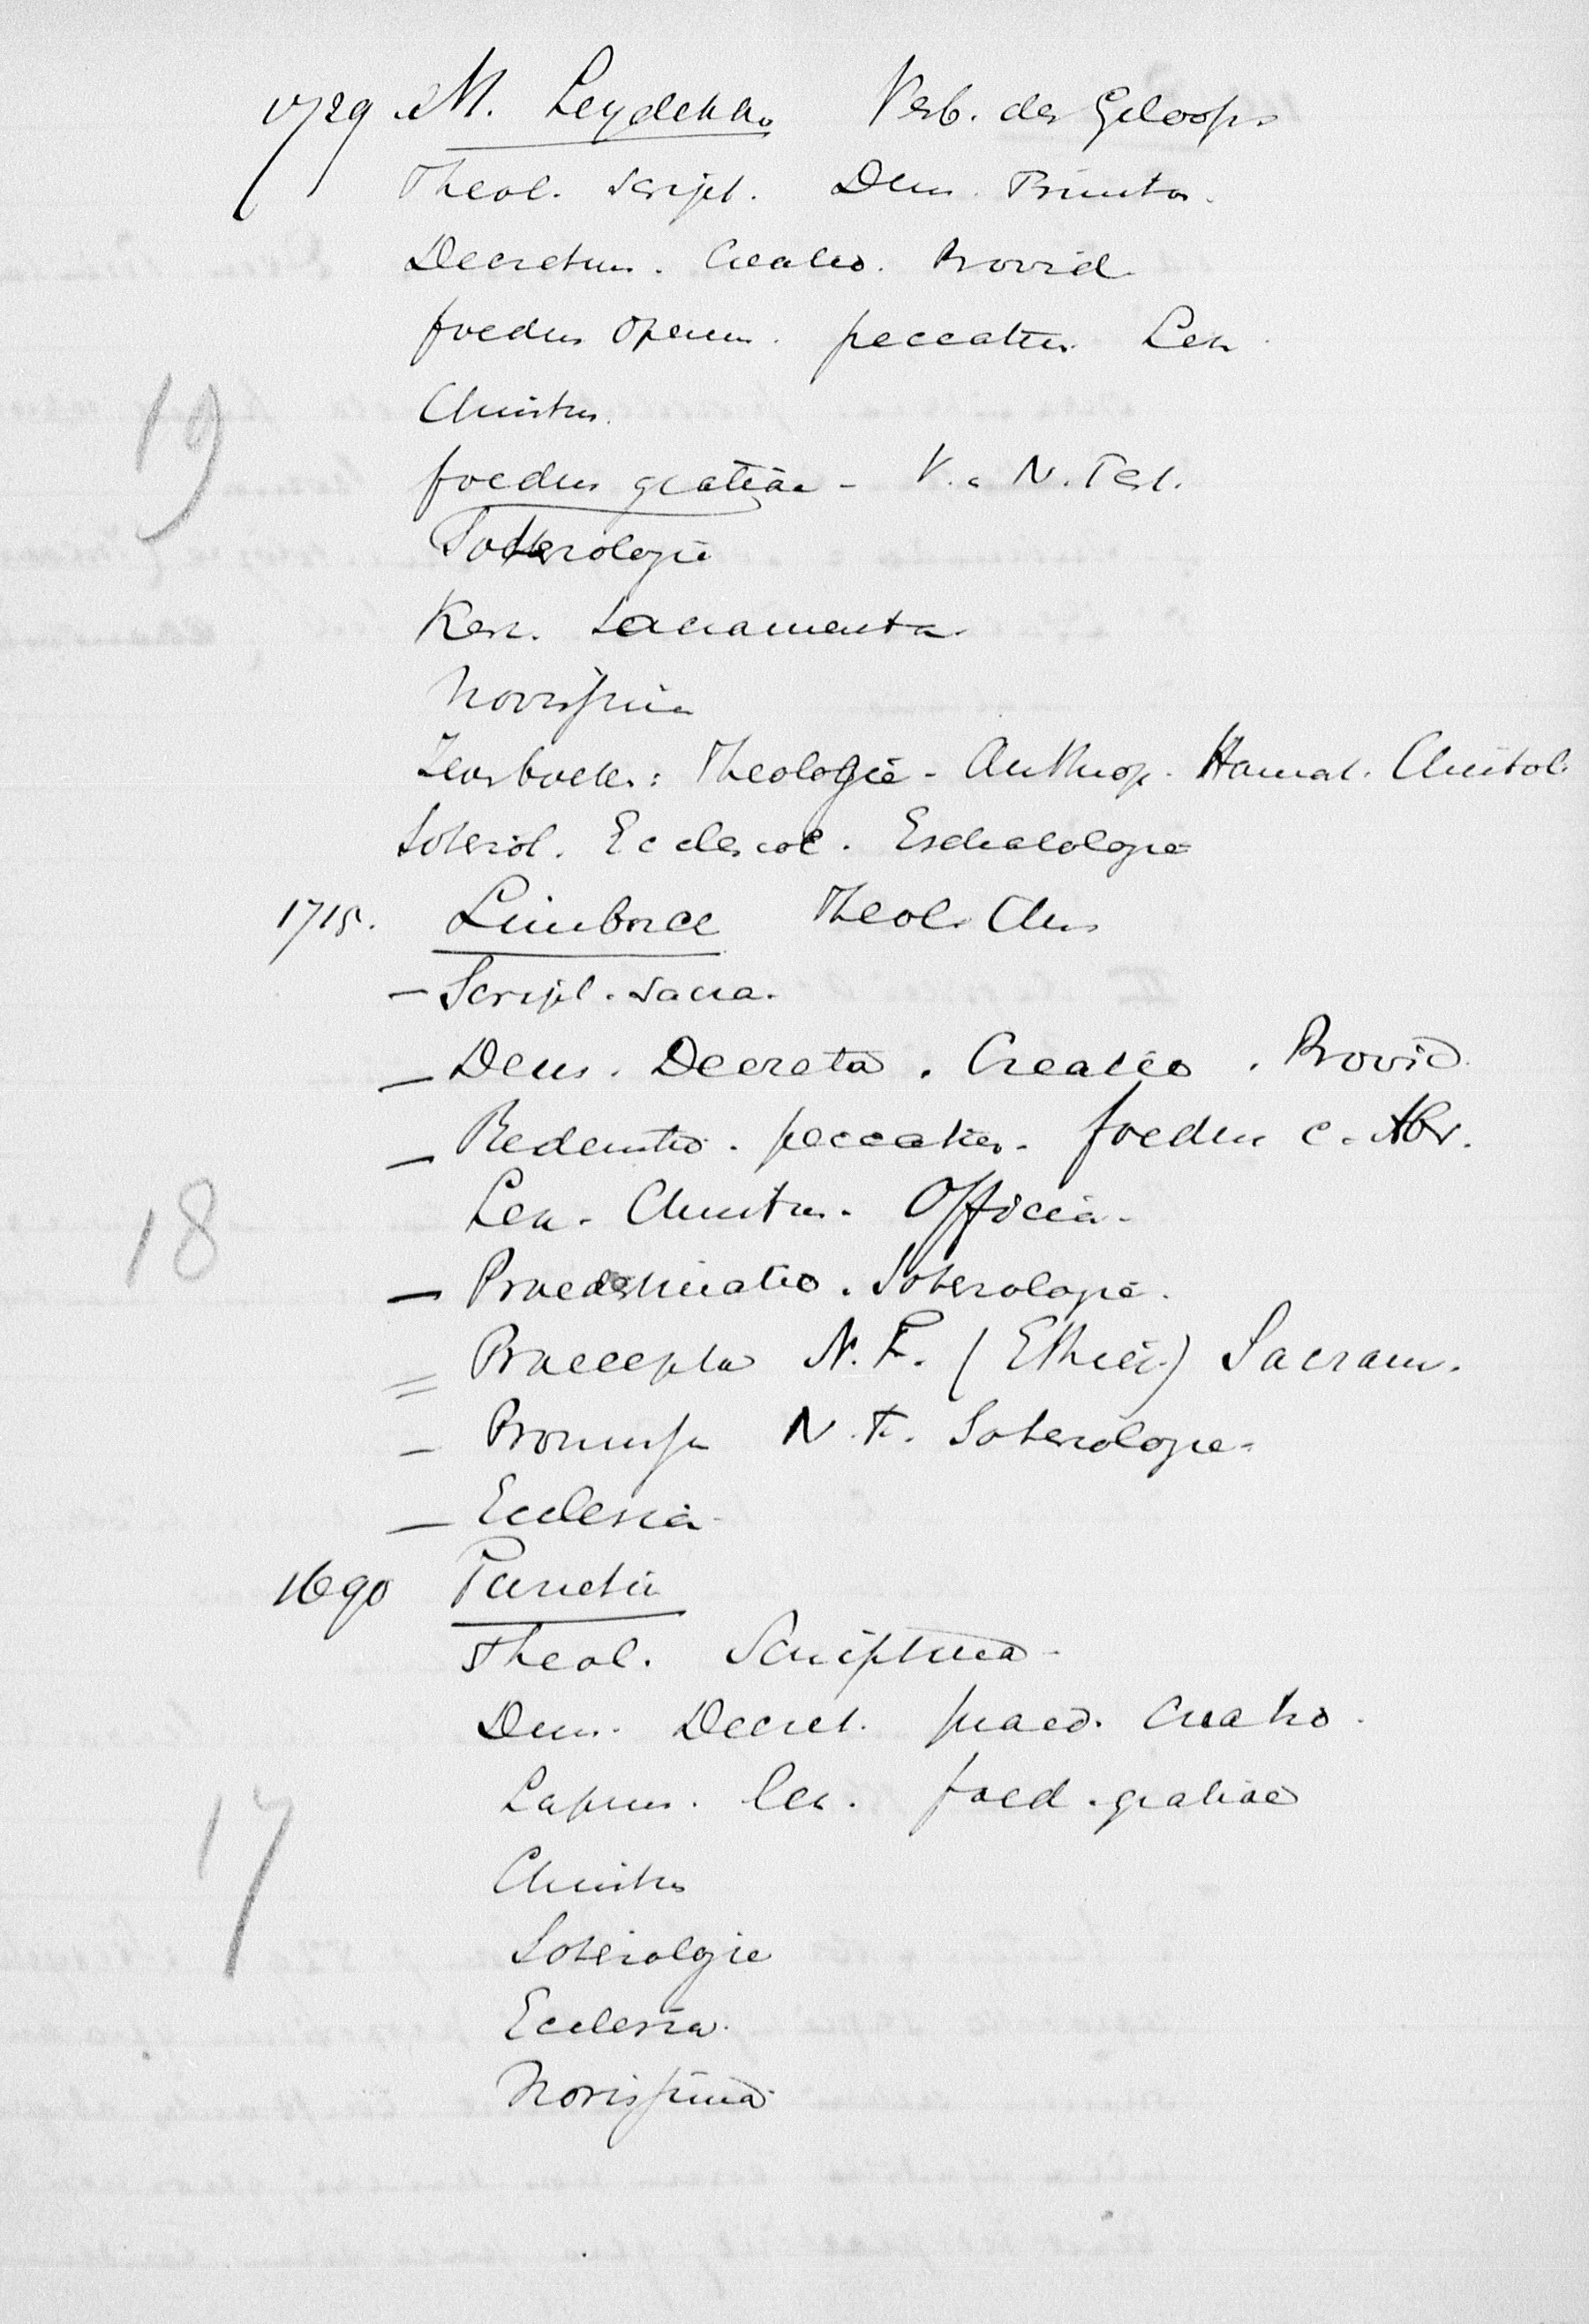 1729 M. Leydekker Verb. des Geloofs
Theol. Script. Deus. Trinitas.
Decretum. Creatio. Provid.
foedus operum. peccatum. Lex.
Christus.
19
foedus gratiae - V. e N. Test.
Soterologie
Kerk. Sacramenta.
Novissima
Zes boeken: Theologie - Anthrop. Hamart. Christol.
Soteriol. Ecclesiol. Eschatologie
1715. Limborch Theol. Chr.
- Script. sacra.
- Deus. Decreta. Creatio. Provid.
- Redemtio. peccatum. foedus c. Abr.
Lex. Christus. Officia.
18
- Praedestinatio. Soterologie.
= Praecepta N. F. (Ethiek) Sacram.
- Promissa N. F. Soterologie.
- Ecclesia.
1690 Turretin
Theol. Scriptura.
Deus. Decret. praed. Creatio.
Lapsus. lex. foed. gratiae
17
Christus
Soterolgie
Ecclesia.
Novissima.